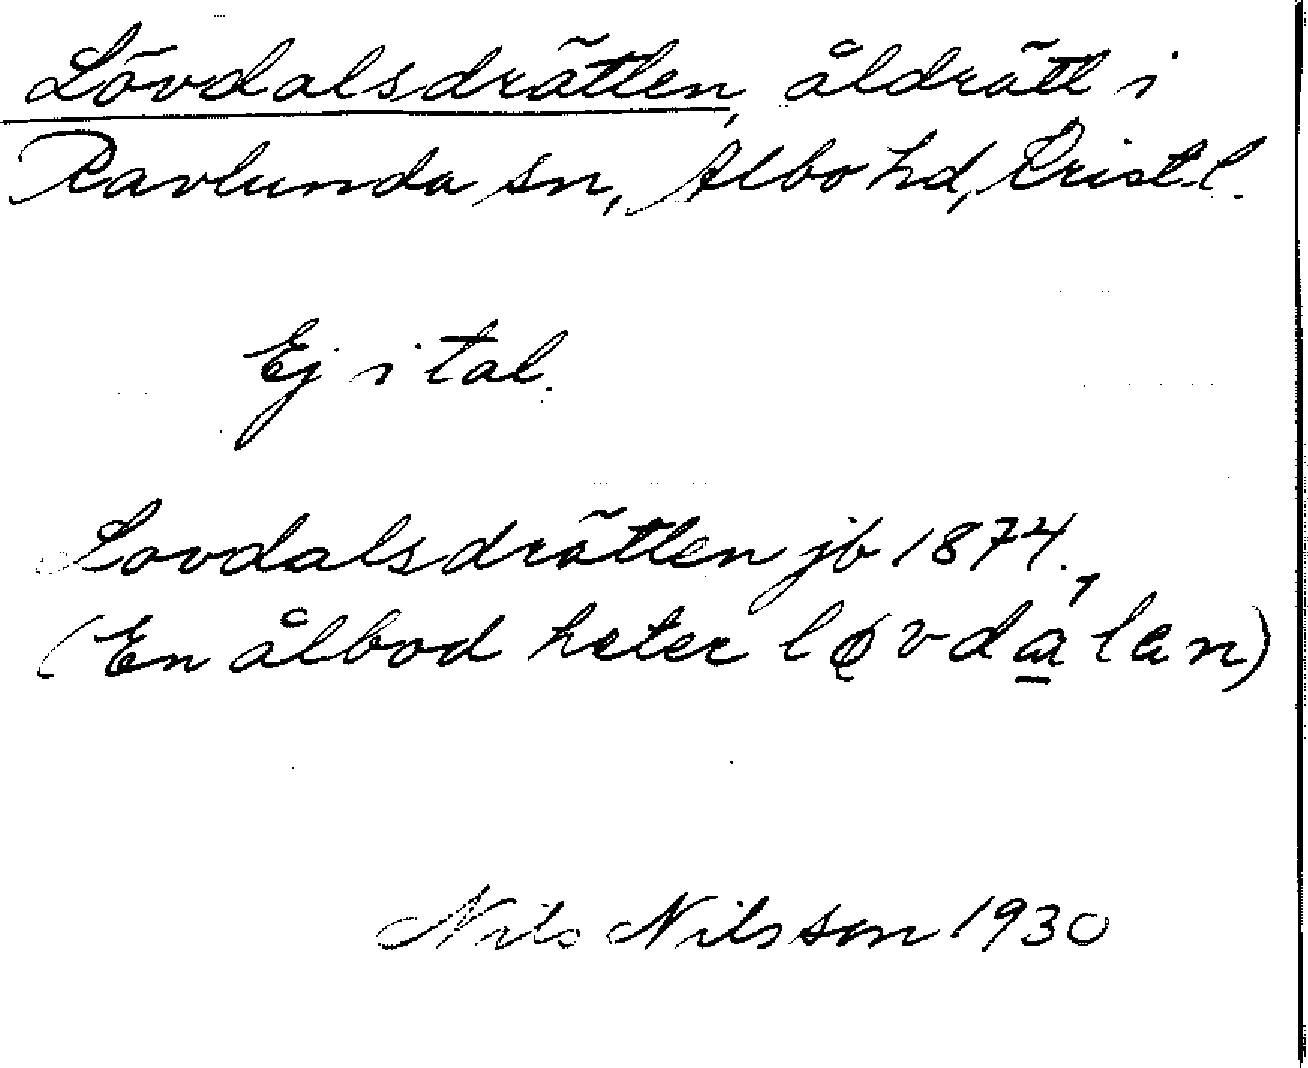 Lövdalsdrätten, åldrätt i
Ravlunda sn, Albo hd, Krist. l.
Ej i tal.
Lovdalsdrätten jb 1874.
(En ålbod heter løvdalen)
Nils Nilsson 1930